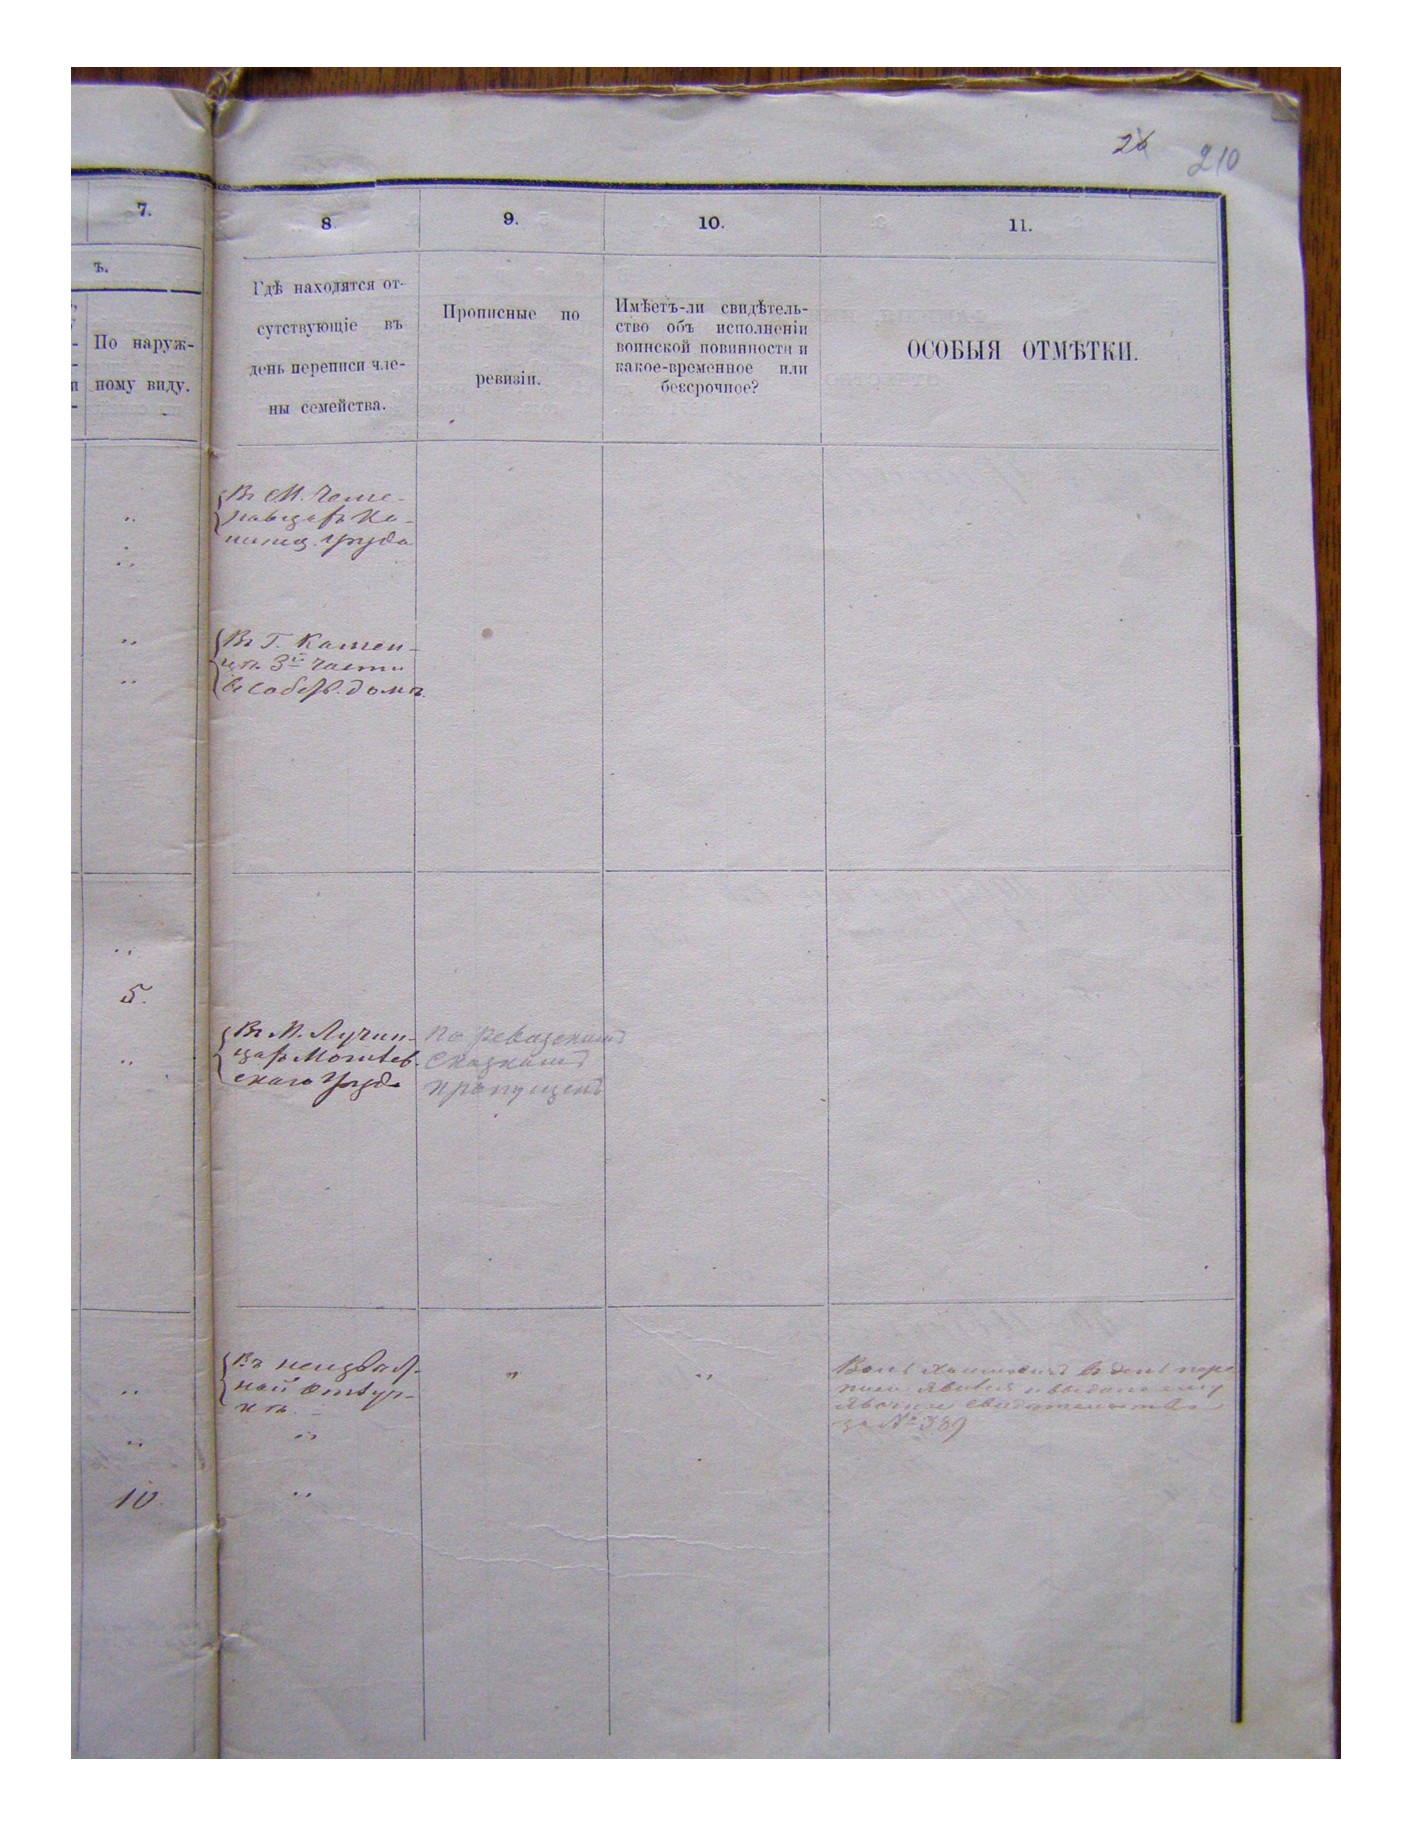 26 210
7.
8
9.
10.
11.
ъ.
По наруж-
ному виду.
Гдѣ находятся от-
сутствующіе въ
день переписи чле-
ны семейства.
Прописные по
ревизіи.
Имѣетъ-ли свидѣтель-
ство объ исполненіи
воинской повинности и
какое-временное или
безсрочное?
ОСОБЫЯ ОТМѢТКИ.
Въ М.
уѣзда
Въ Г. Камен-
цѣ 3й части
въ собств. домѣ.
5.
Въ М. Лучин-
цахъ Могилев.
скаго уѣзда
По ревизскимъ
сказкамъ
пропущенъ
Въ неизвѣст-
ной отлуч-
кѣ.
въ день пере
писи явился и выдано ему
свидѣтельство
за № 389
10.